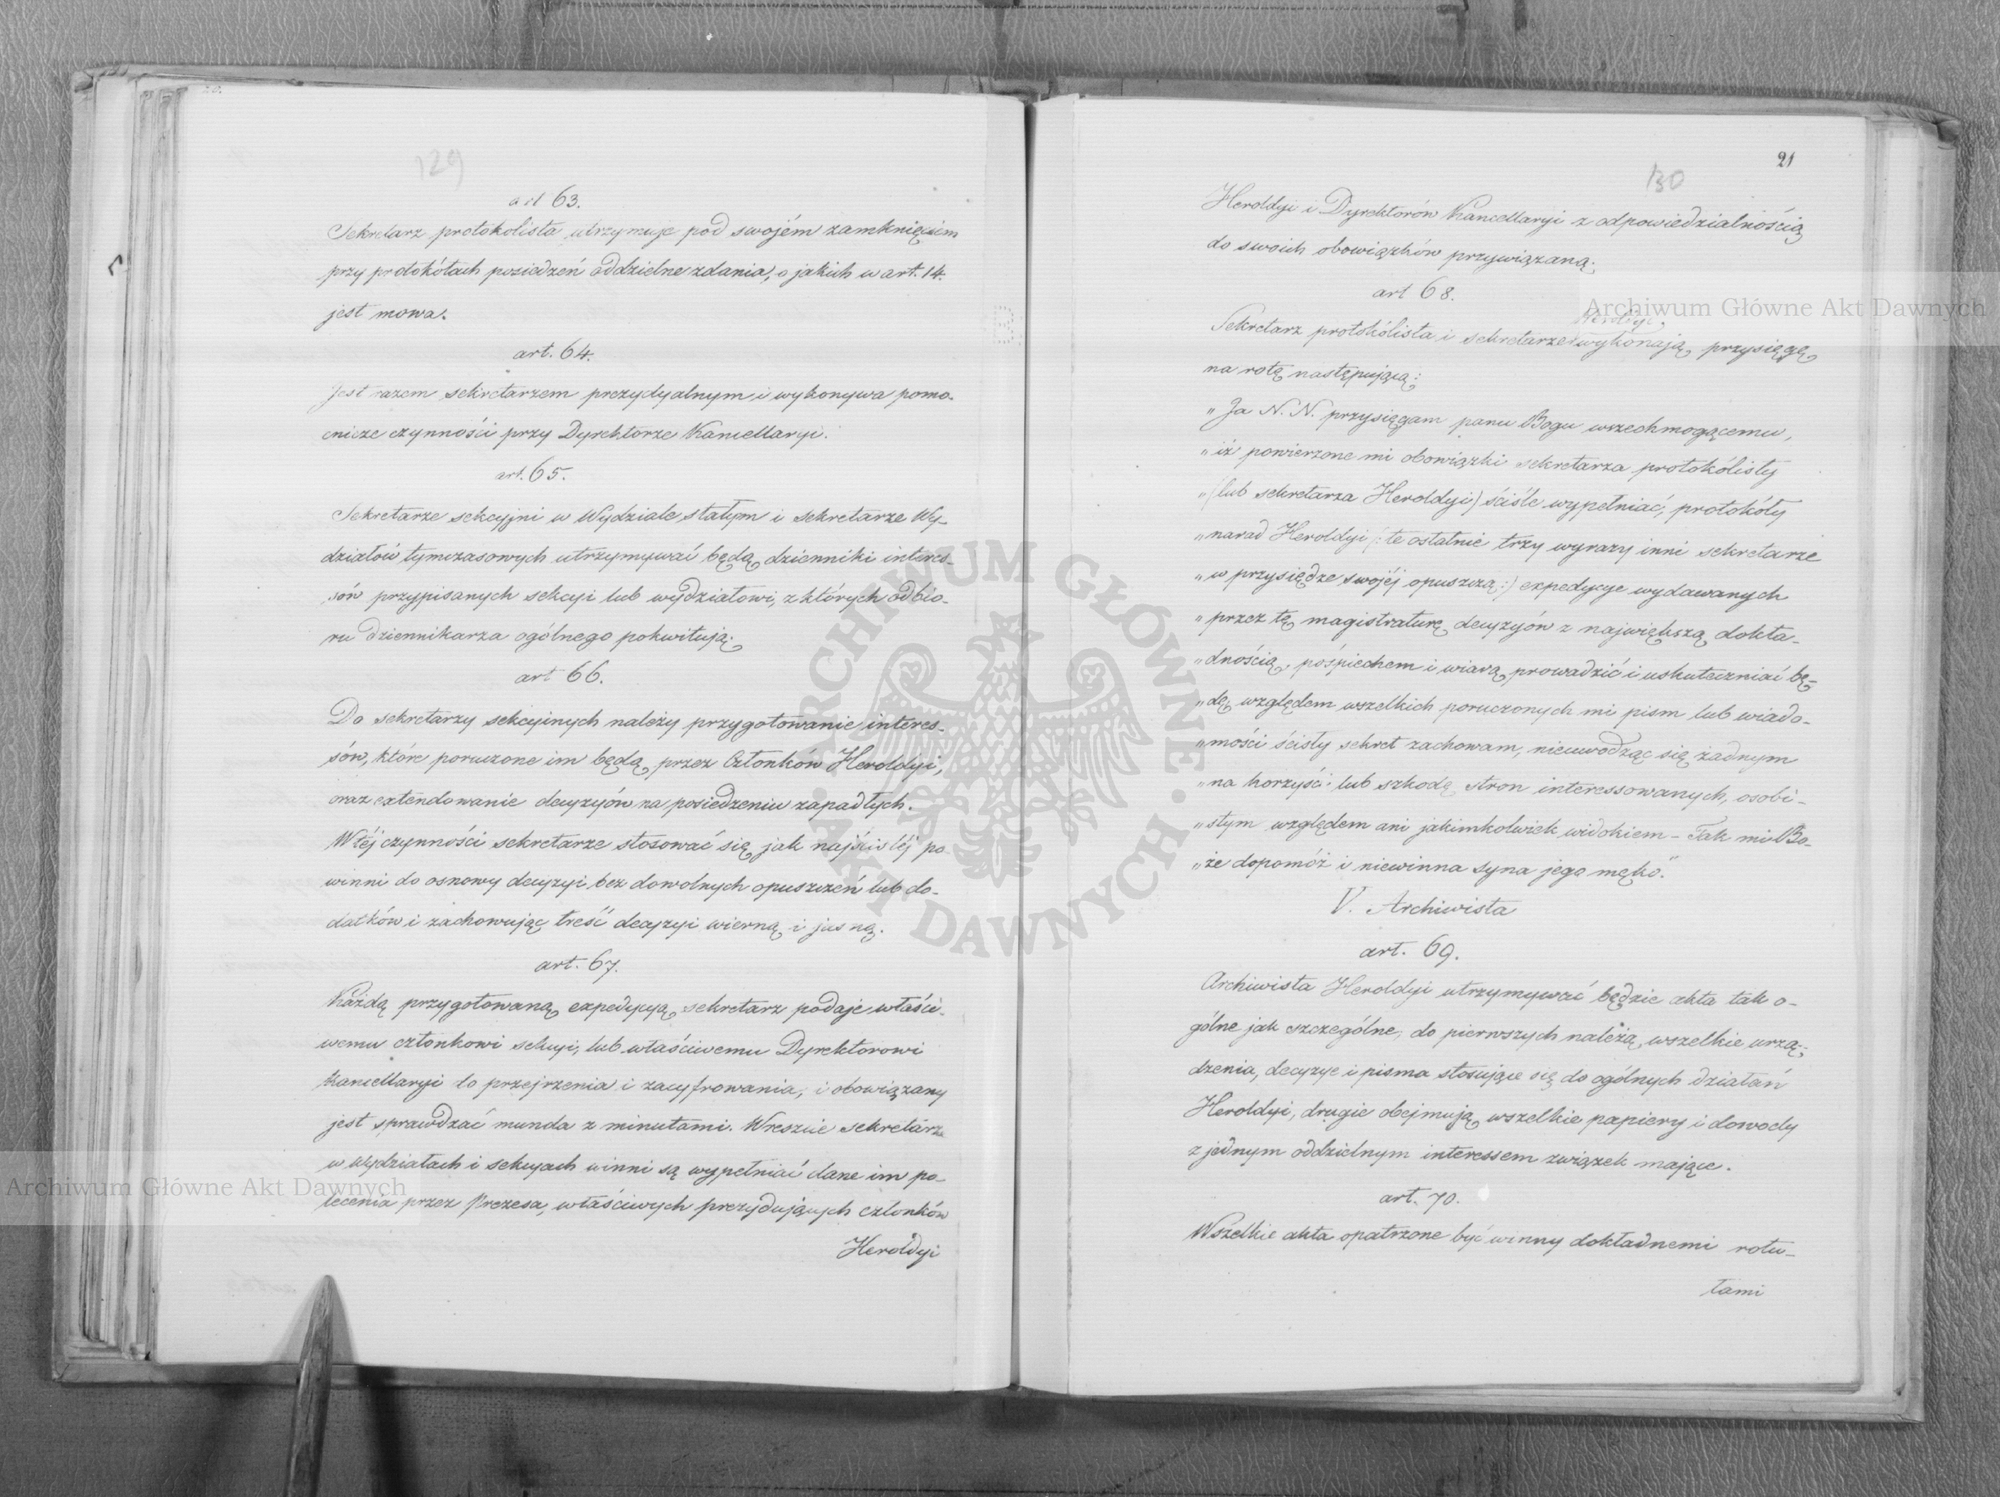 129
art 63.
Sekretarz protokolista utrzymuje pod swojém zamknięciem
przy protokółach posiedzeń oddzielne zdania, o jakich w art. 14.
jest mowa.
art. 64.
Jest razem sekretarzem prezydyalnym i wykonywa pomo-
cnicze czynności przy Dyrektorze Kancellaryi.
art. 65.
Sekretarze sekcyjni w Wydziale stałym i sekretarze Wy-
działów tymczasowych utrzymywać będą dzienniki interes-
sów przypisanych sekcyi lub wydziałowi, z których odbio-
ru dziennikarza ogólnego pokwitują.
art 66.
Do sekretarzy sekcyjnych należy przygotowanie interes-
sów, które poruczone im będą przez Członków Heroldyi,
oraz extendowanie decyzyów na posiedzeniu zapadłych.
W téj czynności sekretarze stosować się jak najściśléj po-
winni do osnowy decyzyi bez dowolnych opuszczeń lub do-
datków i zachowując treść decyzyi wierną i jasną.
art. 67.
Każdą przygotowaną expedycyą sekretarz podaje właści-
wemu członkowi sekcyi, lub właściwemu Dyrektorowi
Kancellaryi do przejrzenia i zacyfrowania, i obowiązany
jest sprawdzać munda z minutami. Wreszcie sekretarze
w Wydziałach i sekcyach winni są wypełniać dane im po-
lecenia przez Prezesa, właściwych prezydujących członków
Heroldyi
21
130
Heroldyi i Dyrektorów Kancellaryi z odpowiedzialnością
do swoich obowiązków przywiązaną.
art 68.
Heroldyi
Sekretarz protokólista i sekretarze wykonają przysięgę
na rotę następującą:
„Ja N. N. przysięgam panu Bogu wszechmogącemu,
„iż powierzone mi obowiązki sekretarza protokólisty
„(lub sekretarza Heroldyi) ściśle wypełniać, protokóły
„narad Heroldyi (: te ostatnie trzy wyrazy inni sekretarze
„w przysiędze swojéj opuszczą :) expedycye wydawanych
„przez tę magistraturę decyzyów z największą dokła-
„dnością, pośpiechem i wiarą prowadzić i uskuteczniać bę-
„dę względem wszelkich poruczonych mi pism lub wiado-
„mości ścisły sekret zachowam, nieuwodząc się żadnym
„na korzyść lub szkodę stron interessowanych, osobi-
„stym względem ani jakimkolwiek widokiem – Tak mi Bo-
„że dopomóż i niewinna syna jego męko.”
V. Archiwista
art. 69.
Archiwista Heroldyi utrzymywać będzie akta tak o-
gólne jak szczególne, do pierwszych należą wszelkie urzą-
dzenia, decyzye i pisma stosujące się do ogólnych działań
Heroldyi, drugie obejmują wszelkie papiery i dowody
z jednym oddzielnym interessem związek mające.
art. 70.
Wszelkie akta opatrzone być winny dokładnemi rotu-
łami
Archiwum Główne Akt Dawnych
Archiwum Główne Akt Dawnych
ARCHIWUM GŁÓWNE AKT DAWNYCH